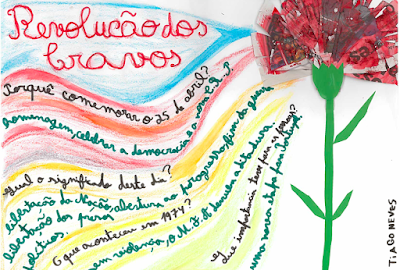 Revolução dos
Cravos
Porquê comemorar o 25 de abril?
homenagem, celebrar a democracia e o
Qual o significado deste dia?
libertação da Nação, abertura ao progresso, fim da guerra
libertação dos presos
políticos.
O que aconteceu em 1974?
sem violência, o M. F. A. derruba a ditadura
Que importância teve para as pessoas?
uma nova etapa para Portugal
TIAGO NEVES